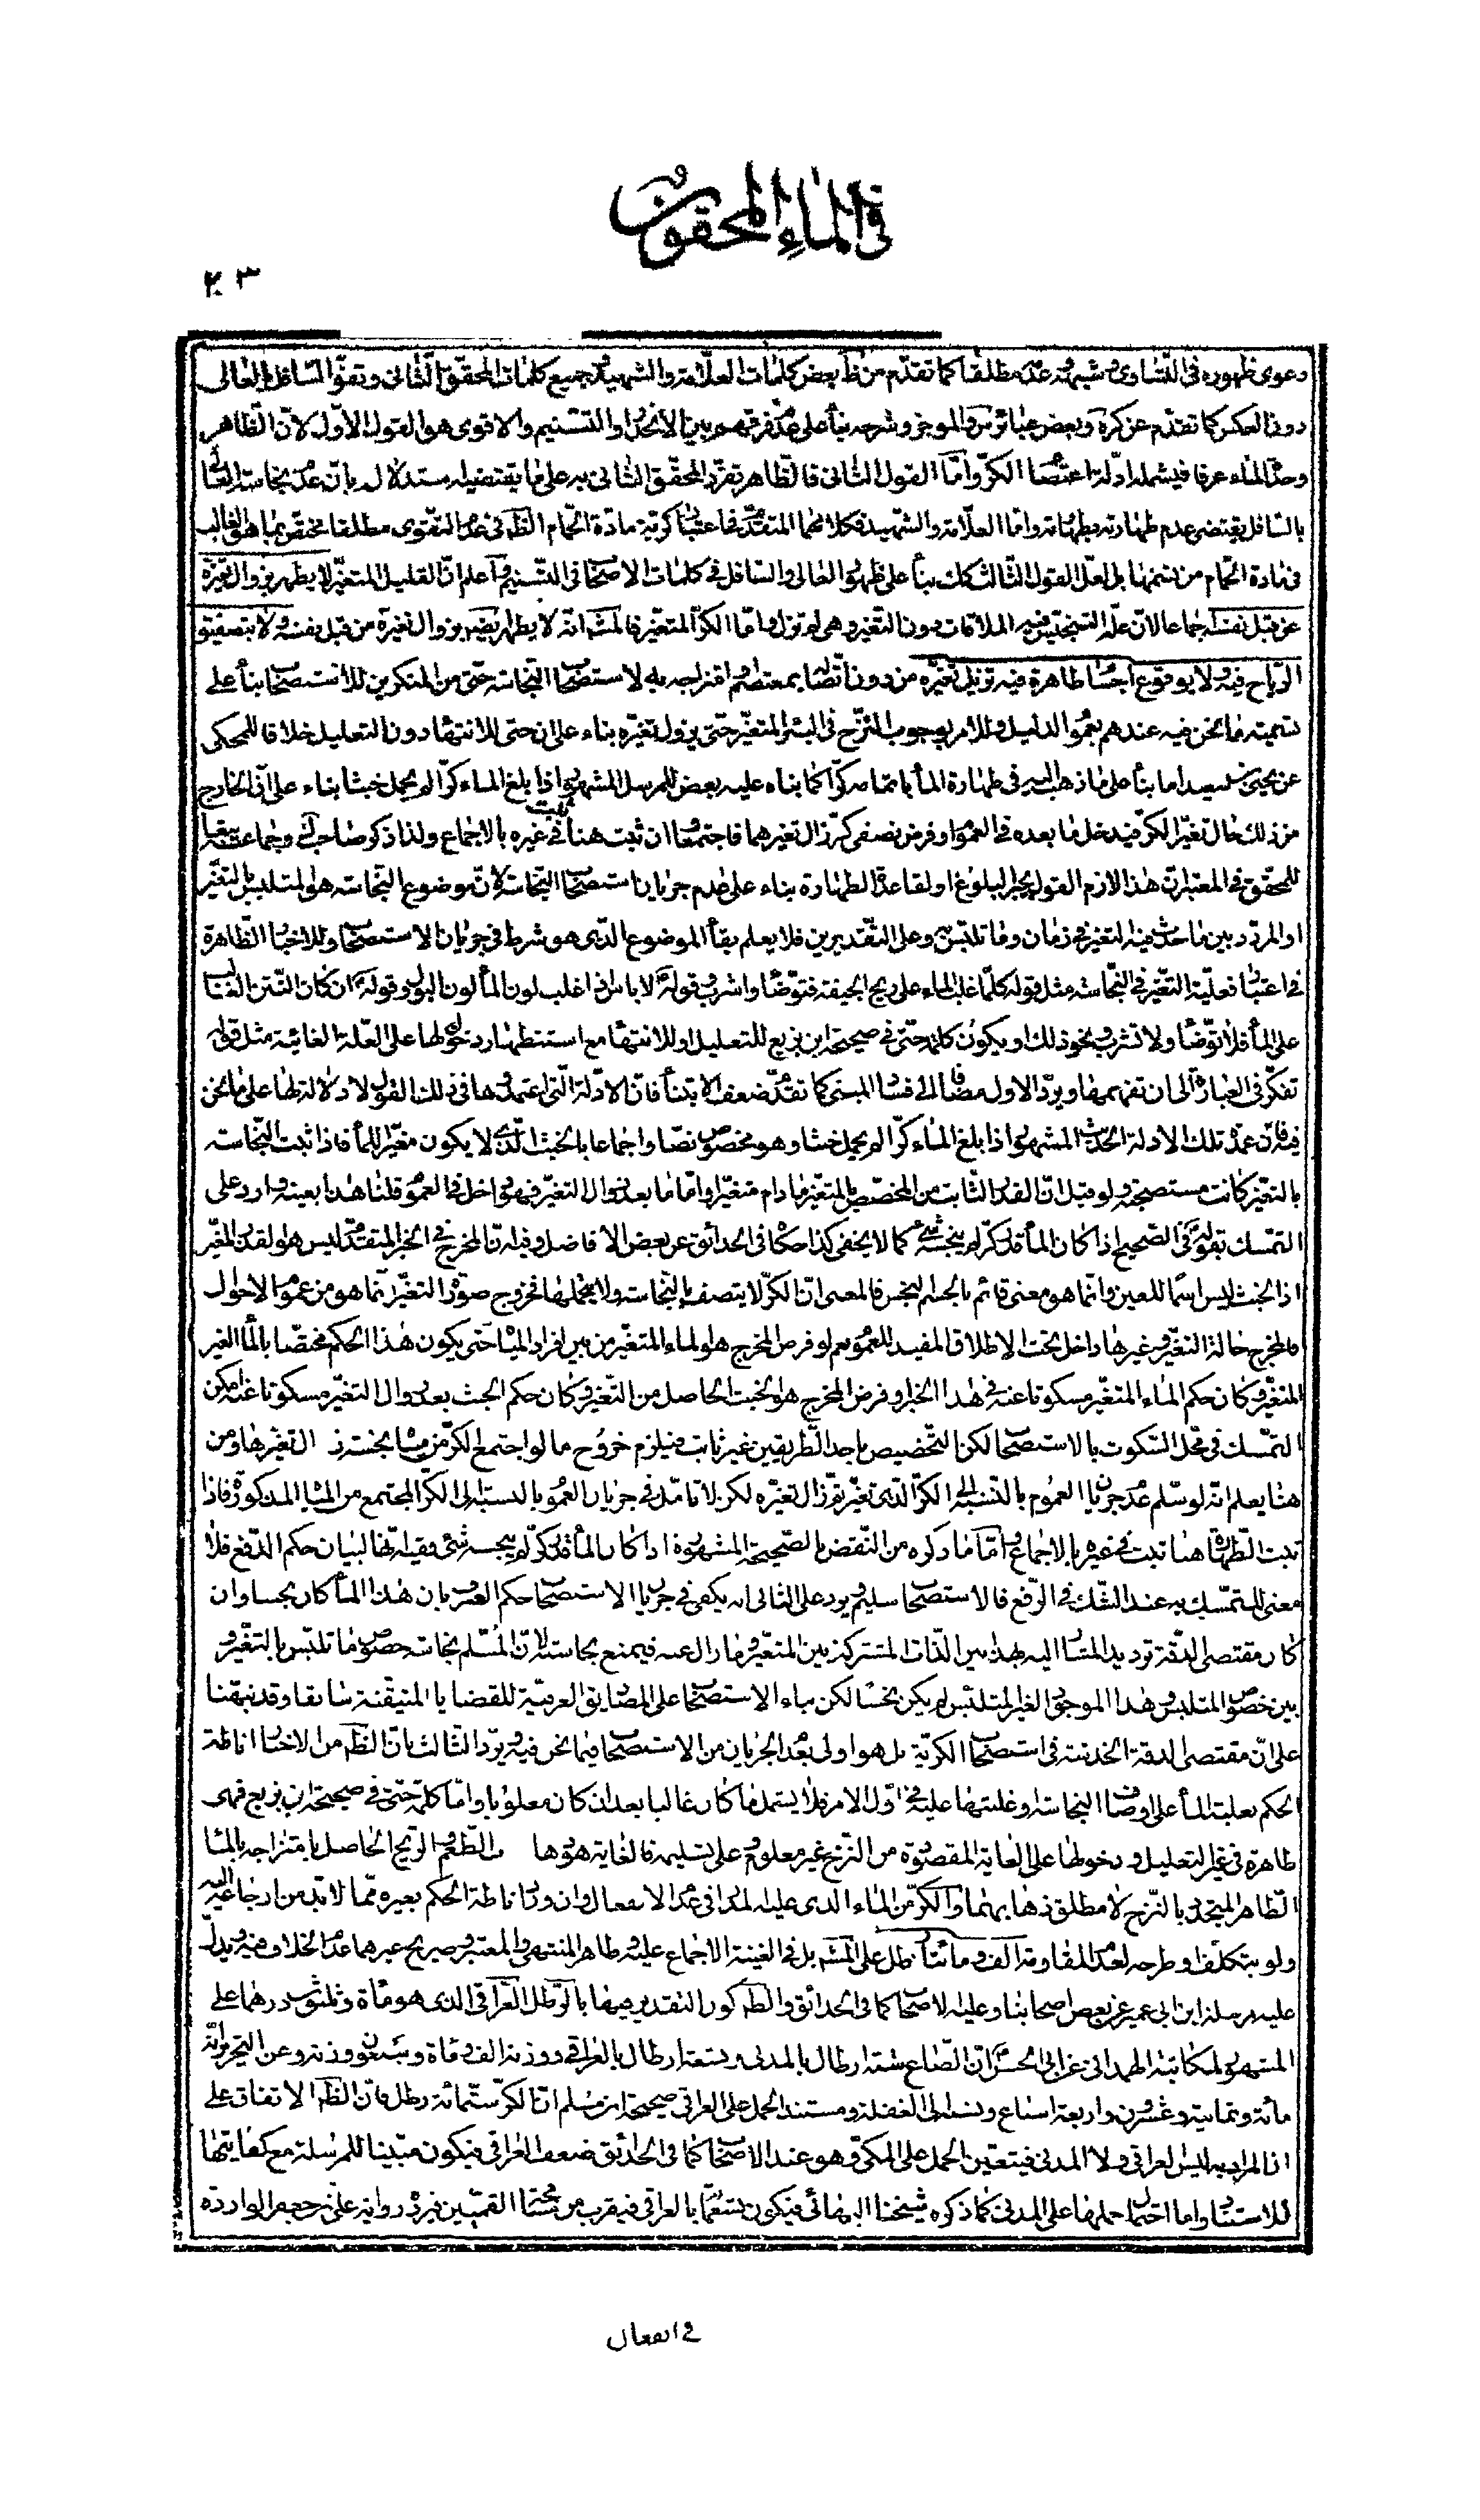 في الماء المحقون
٢٣
دعوى ظهوره في التساوى و شبهه عدمه مطلقا كما تقدّم من ظاهر بعض كلمات العلّامة و الشهيد و جميع كلمات المحقّق الثّانى و تقوّى السّافل بالعالى
دون العكس كما تقدّم عن كره و بعض عبائر س و الموجز و شرحه بناء على عدم فرقهم بين الانحدار و التسنيم و الاقوى هو القول الأوّل لانّ الظّاهر
وحدة الماء عرفا فيشمله ادلّة اعتصام الكرّ و امّا القول الثانى فالظّاهر تفرّد المحقّق الثّانى به على ما يقتضيه استدلاله بانّ عدم نجاسة العالى
بالسّافل يقتضى عدم طهارته بطهارته و امّا العلّامة و الشّهيد فكلامهما المتقدّم في اعتبار كرّية مادّة الحمام الظّاهر في عدم التقوى مطلقا مختصّ بما هو الغالب
في مادة الحمام من تسنّمها بل لعلّ القول الثّالث كك بناء على ظهور العالى و السّافل في كلمات الاصحاب في التّسنيم و اعلم انّ القليل المتغيّر لا يطهر بزوال تغيّره
عن قبل نفسه اجماعا لانّ علّة التنجّس فيه الملاقات دون التّغير و هى لم تزل و امّا الكرّ المتغيّر فالمشهور انّه لا يطهر بزوال تغيّره من قبل نفسه و لا بتصفيق
الرّياح فيه و لا بوقوع اجسام طاهرة فيه تزيل تغيّره من دون اتّصال بمعتصم او امتزاجه به لاستصحاب النّجاسة حتّى من المنكرين للاستصحاب بناء على
تسمية ما نحن فيه عندهم بعموم الدّليل و للامر بوجوب النّزح في البئر المتغيّر حتّى يزول تغيّره بناء على ان حتى للانتهاء دون التعليل خلافا للمحكى
عن يحيى بن سعيد اما بناء على ما ذهب اليه في طهارة الماء باتمامه كرّا كما بناه عليه بعض للمرسل المشهور اذا بلغ الماء كرّا لم يحمل خبثا بناء على انّ الخارج
من ذلك حال تغيّر الكرّ فيدخل ما بعده في العموم او فرض نصفى كرّ زال تغيرهما فاجتمعا ان ثبت هنا ثبت في غيره بالاجماع و لذا ذكر صاحب و جماعة تبعا
للمحقق في المعتبر ان هذا لازم القول بخبر البلوغ او لقاعدة الطهارة بناء على عدم جريان استصحاب النّجاسة لانّ موضوع النّجاسة هو المتلبس بالتغيّر
او المردّد بين ما حدث فيه التغير في زمان و ما تلبّس به و على التّقديرين فلا يعلم بقاء الموضوع الّذى هو شرط في جريان الاستصحاب و للاخبار الظّاهرة
في اعتبار فعليّة التغيّر في النّجاسة مثل قوله كلّما غلب الماء على ريح الجيفة فتوضّأ و اشرب و قوله لا باس اذا غلب لون الماء لون البول و قوله ان كان النّتن الغالب
على الماء فلا توضّأ و لا تشرب و نحو ذلك او يكون كلمة حتّى في صحيحة ابن بزيع للتعليل او للانتهاء مع استظهار دخولها على العلّة الغائية مثل قوله
تفكّر في العبارة الى ان تفهمها و يردّ الاول مضافا الى فساد المبنى كما تقدّم ضعف الابتناء فانّ الادلّة الّتى اعتمدها في ذلك القول لا دلالة لها على ما نحن
فيه فانّ عمدة تلك الادلة الحديث المشهور اذا بلغ الماء كرّا لم يحمل خبثا و هو مخصوص نصّا و اجماعا بالخبث الّذى لا يكون مغيّرا للماء فاذا ثبت النّجاسة
بالتغيّر كانت مستصحبة و لو قيل انّ القدر الثّابت من المخصّص المتغيّر ما دام متغيّرا و امّا ما بعد زوال التغيّر فهو داخل في العموم قلنا هذا بعينه وارد على
التّمسك بقوله في الصّحيح اذا كان الماء قدر كرّ لم ينجّسه شىء كما لا يخفى كذا حكاه في الحدائق عن بعض الافاضل و فيه انّ المخرج في الخبر المتقدّم ليس هو لفظ المغيّر
اذ الخبث ليس اسما للعين و انّما هو معنى قائم بالجسم النجس فالمعنى انّ الكرّ لا يتصف بالنّجاسة و لا يحملها فخروج صورة التغيّر انّما هو من عموم الاحوال
فالمخرج حالة التغيّر و غيرها داخل تحت الاطلاق المفيد للعموم نعم لو فرض المخرج هو الماء المتغيّر من بين افراد المياه حتى يكون هذا الحكم مختصّا بالماء الغير
المتغيّر و كان حكم الماء المتغيّر مسكوتا عنه في هذا الخبر او فرض المخرج هو الخبث الحاصل من التّغير و كان حكم الخبث بعد زوال التغيّر مسكوتا عنه امكن
التمسّك في محلّ السّكوت بالاستصحاب لكن التّخصيص باحد الطّريقين غير ثابت فيلزم خروج ما لو اجتمع الكرّ من مياه نجسة التغيّر ها و من
هنا يعلم انّه لو سلّم عدم جريان العموم بالنّسبة الى الكرّ الّذى تغيّر ثم زال تغيّره لكن لا تامّل في جريان العموم بالنسبة الى الكرّ المجتمع من المياه المذكورة فاذا
ثبت الطّهارة هنا ثبت في غيره بالاجماع و امّا ما ذكره من النّقض بالصّحيحة المشهورة اذا كان الماء قدر كرّ لم ينجسه شئ ففيه انّها لبيان حكم الدّفع فلا
معنى للتمسّك به عند الشّك في الرّفع فالاستصحاب سليم و يرد على الثّانى انه يكفى في جريان الاستصحاب حكم العرف بان هذا الماء كان نجسا و ان
كان مقتضى الدقّة ترديد المشار اليه بهذا بين الذّات المشتركة بين المتغيّر و ما زال عنه فيمنع نجاسته لانّ المسلّم نجاسة خصوص ما تلبّس بالتغيّر و
بين خصوص المتلبس و هذا الموجود الغير المتلبّس لم يكن نجسا لكن بناء الاستصحاب على المصاديق العرفيّة للقضايا المتيقّنة سابقا و قد نبّهنا
على انّ مقتضى الدقة الخدشة في استصحاب الكريّة بل هو اولى بعدم الجريان من الاستصحاب فيما نحن فيه و يردّ الثالث بانّ الظّاهر من الاخبار اناطة
الحكم بغلبة الماء على اوصاف النجاسة او غلبتها عليه في اوّل الامر فلا يشمل ما كان غالبا بعد ان كان مغلوبا و امّا كلمة حتّى في صحيحة ابن بزيع فهى
ظاهرة في غير التعليل و دخولها على الغاية المقصودة من النّزح غير معلوم و على تسليمه فالغاية هو ذهاب الطّعم و الرّيح الحاصل بامتزاجه بالماء
الطّاهر المتجدّد بالنّزح لا مطلق ذهابهما و الكرّ من الماء الذى عليه المدار في عدم الانفعال و ان ورد اناطة الحكم بغيره ممّا لا بدّ من ارجاعه اليه
و لو بتكلّف او طرحه لعدم المقاومة الف و مائتا رطل على المشهور بل في الغنية الاجماع عليه و ظاهر المنتهى و المعتبر و صريح غيرهما عدم الخلاف فيه و يدلّ
عليه مرسلة ابن ابى عمير عن بعض اصحابنا و عليه الاصحاب كما في الحدائق و الظّاهر كون التقدير فيها بالرّطل العراقى الذى هو مأة و ثلثون درهما على
المشهور لمكاتبة الهمدانى عن ابى الحسن انّ الصّاع ستة ارطال بالمدنى و تسعة ارطال بالعراقى و وزنه الف و مأة و سبعون وزنة و عن التحرير انّه
مأة و ثمانية و عشرون و اربعة اسباع و نسب الى الغفلة و مستند الحمل على العراقى صحيحة ابن مسلم انّ الكرّ ستّمائة رطل فانّ الظّاهر الاتفاق على
ان المراد به ليس العراقى و لا المدنى فيتعيّن الحمل على المكّى و هو عند الاصحاب كما في الحدائق ضعف العراقى فيكون مبيّنا للمرسلة مع كفايتها
للاستناد و اما احتمال حملها على المدنى كما ذكره شيخنا البهائى فيكون تسعمأة بالعراقى فيقرب من مختار القمّيين فيردّه رواية علىّ بن جعفر الواردة
في انفعال